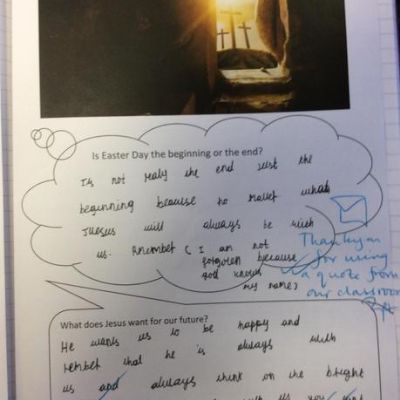 Is Easter Day the beginning or the end?
Its not realy the end Just the
beginning because no matter what
Juesus will always be with
us. Rember ( I am not
forgoten because
god knows
my name)
Thankyou
for using
a quote from
our classroom
What does Jesus want for our future?
He wants us to be happy and
rember that he is always with
us and always think on the bright
with us you